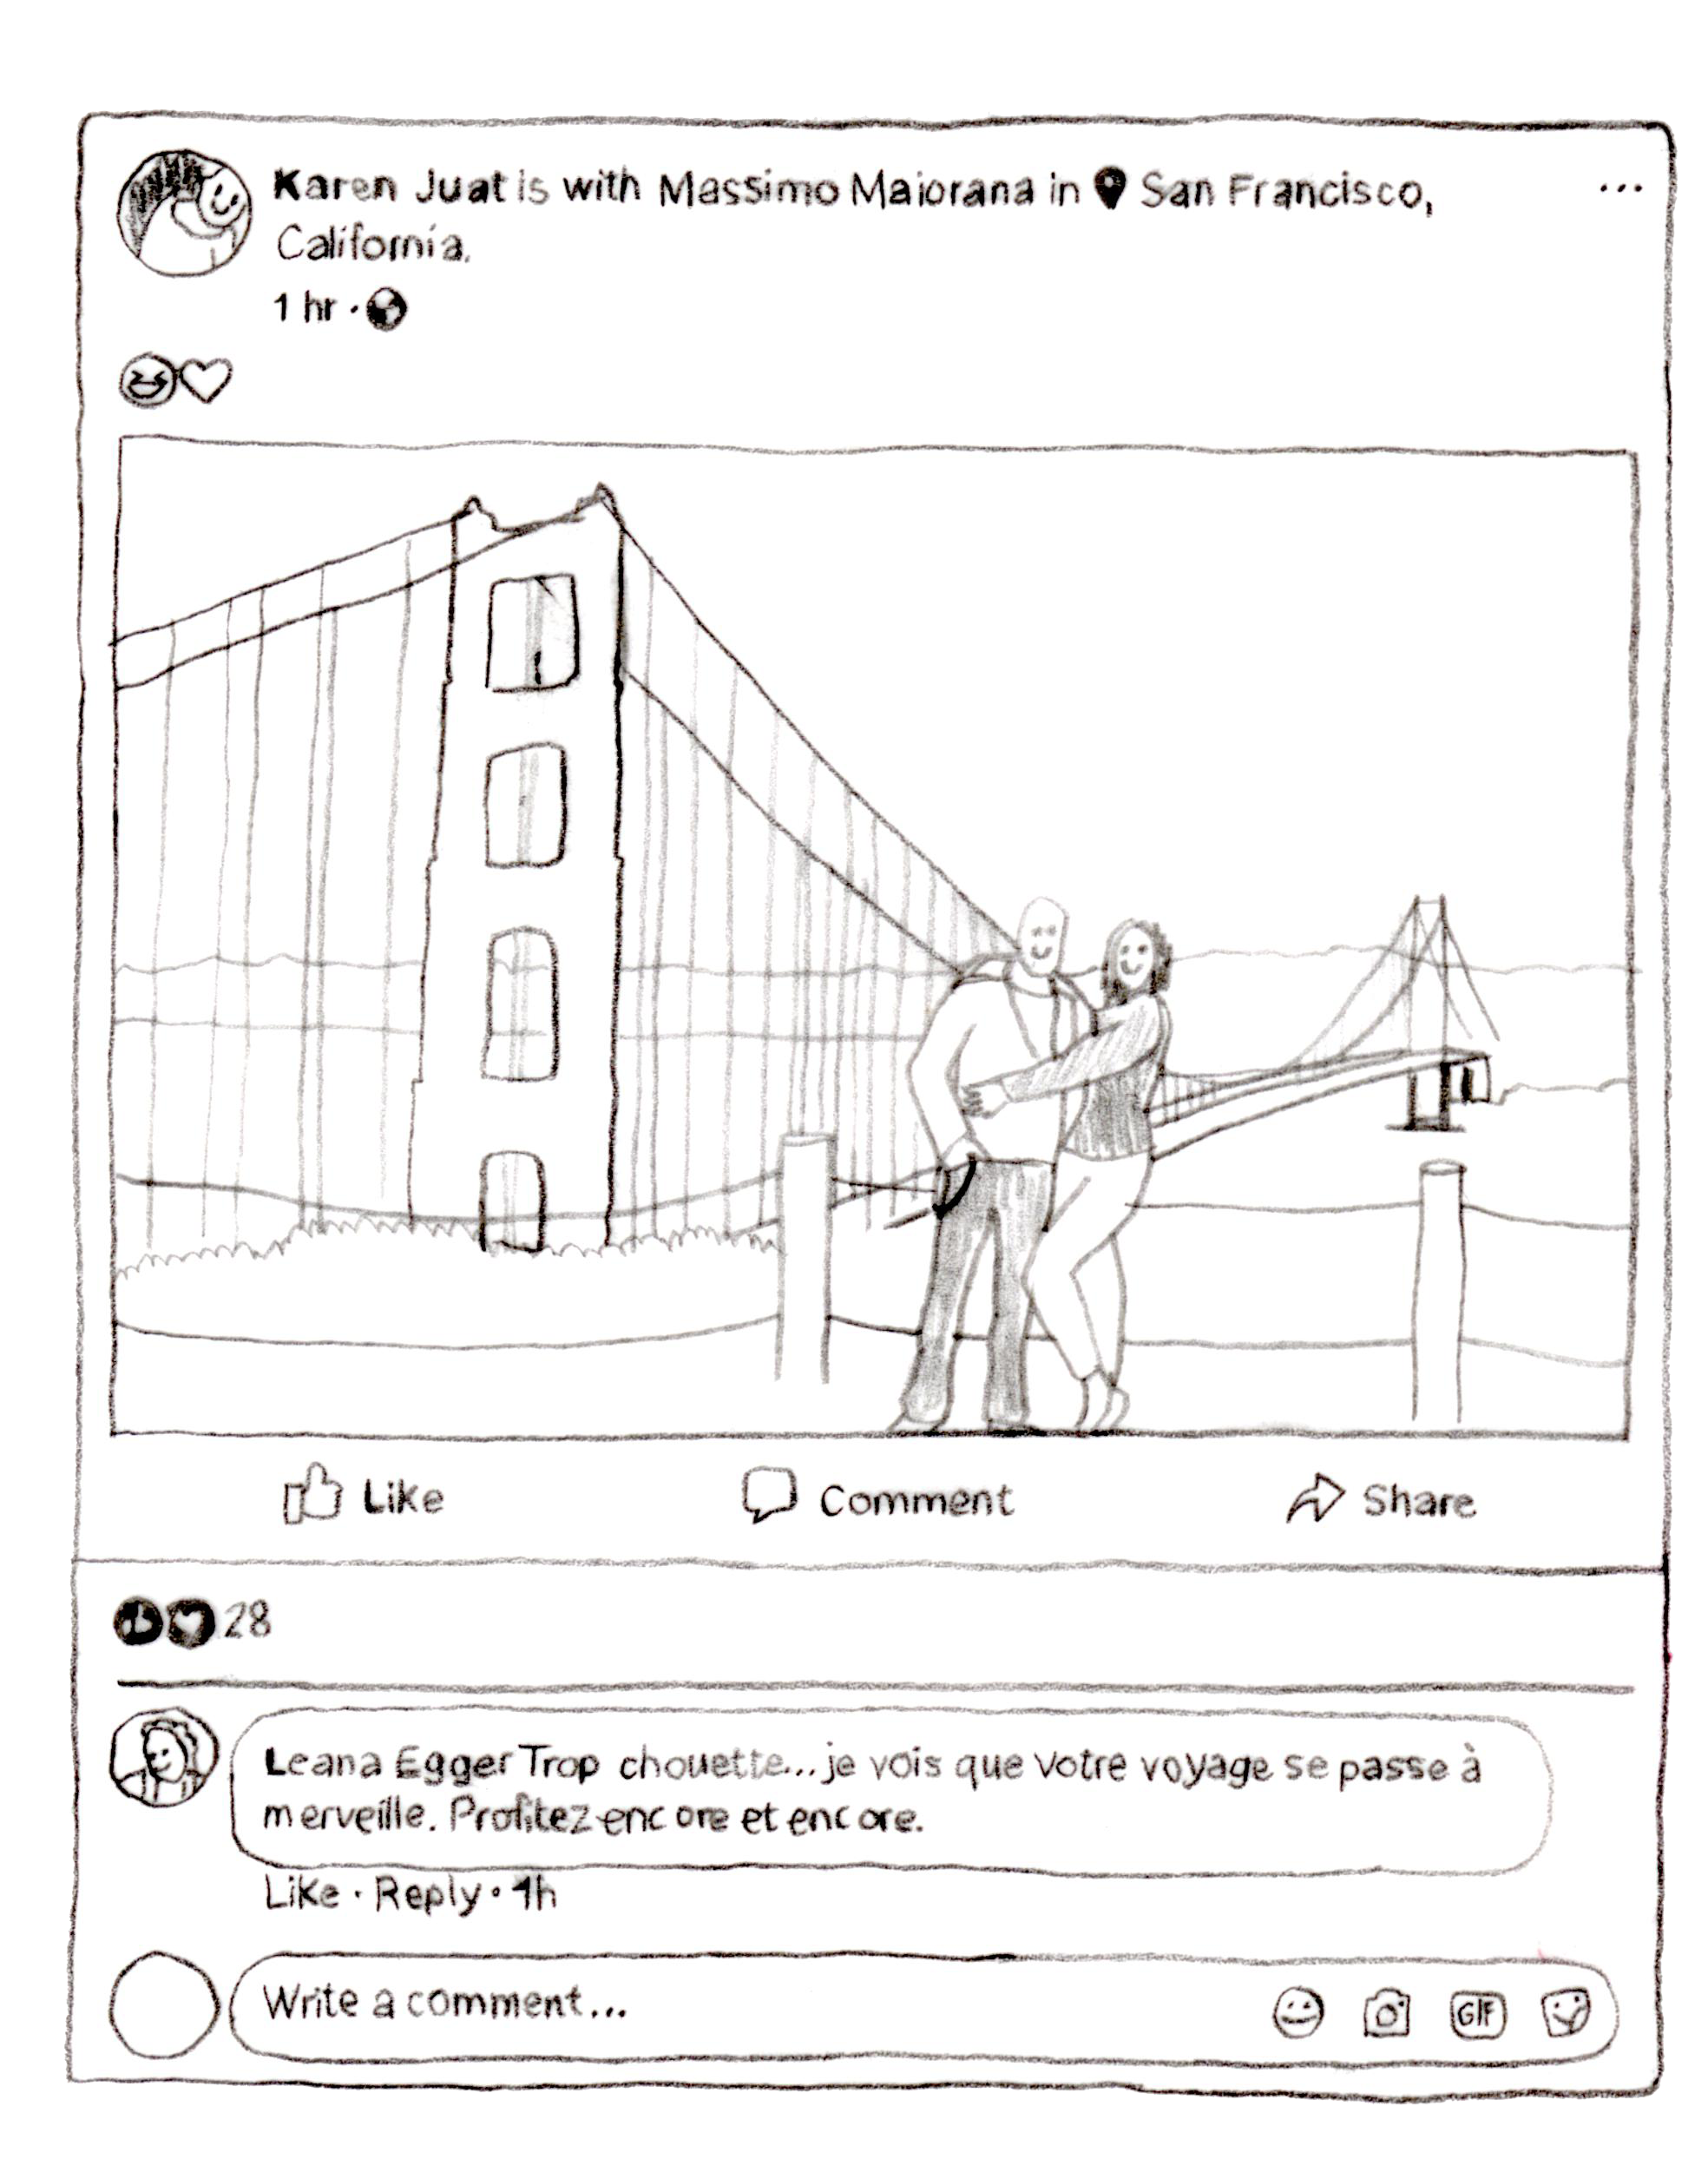 Karen Juat is with Massimo Maiorana in San Francisco,
California.
1 hr ·
Like
Comment
Share
28
Leana Egger Trop chouette... je vois que votre voyage se passe à
merveille. Profitez encore et encore.
Like · Reply · 1h
Write a comment...
GIF